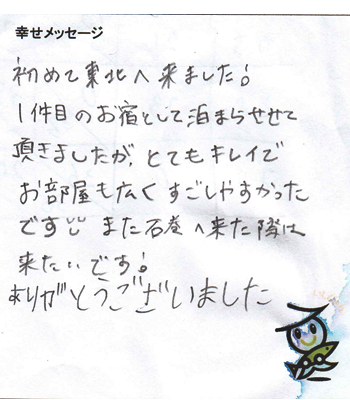 幸せメッセージ
初めて東北へ来ました!
1件目のお宿として泊まらせせて
頂きましたが、とてもキレイで
お部屋も広くすごしやすかった
です また石巻へ来た際は
来たいです!
ありがとうございました